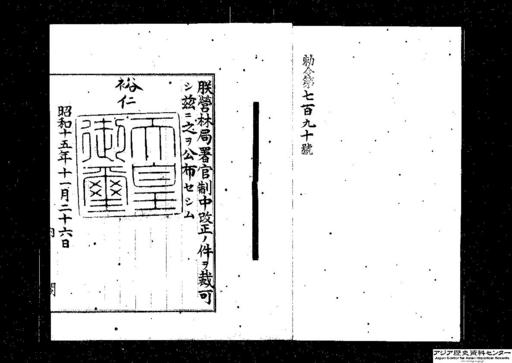 勅令第七百九十號
朕營林局署官制中改正ノ件ヲ裁可
シ茲ニ之ヲ公布セシム
裕仁
天皇
御璽
昭和十五年十一月二十六日
内閣
アジア歴史資料センター
Japan Center for Asian Historical Records